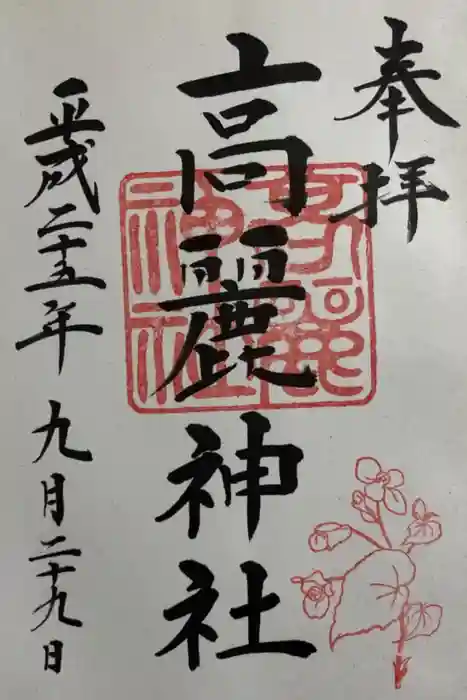 奉拝
高麗神社
平成二十五年九月二十九日